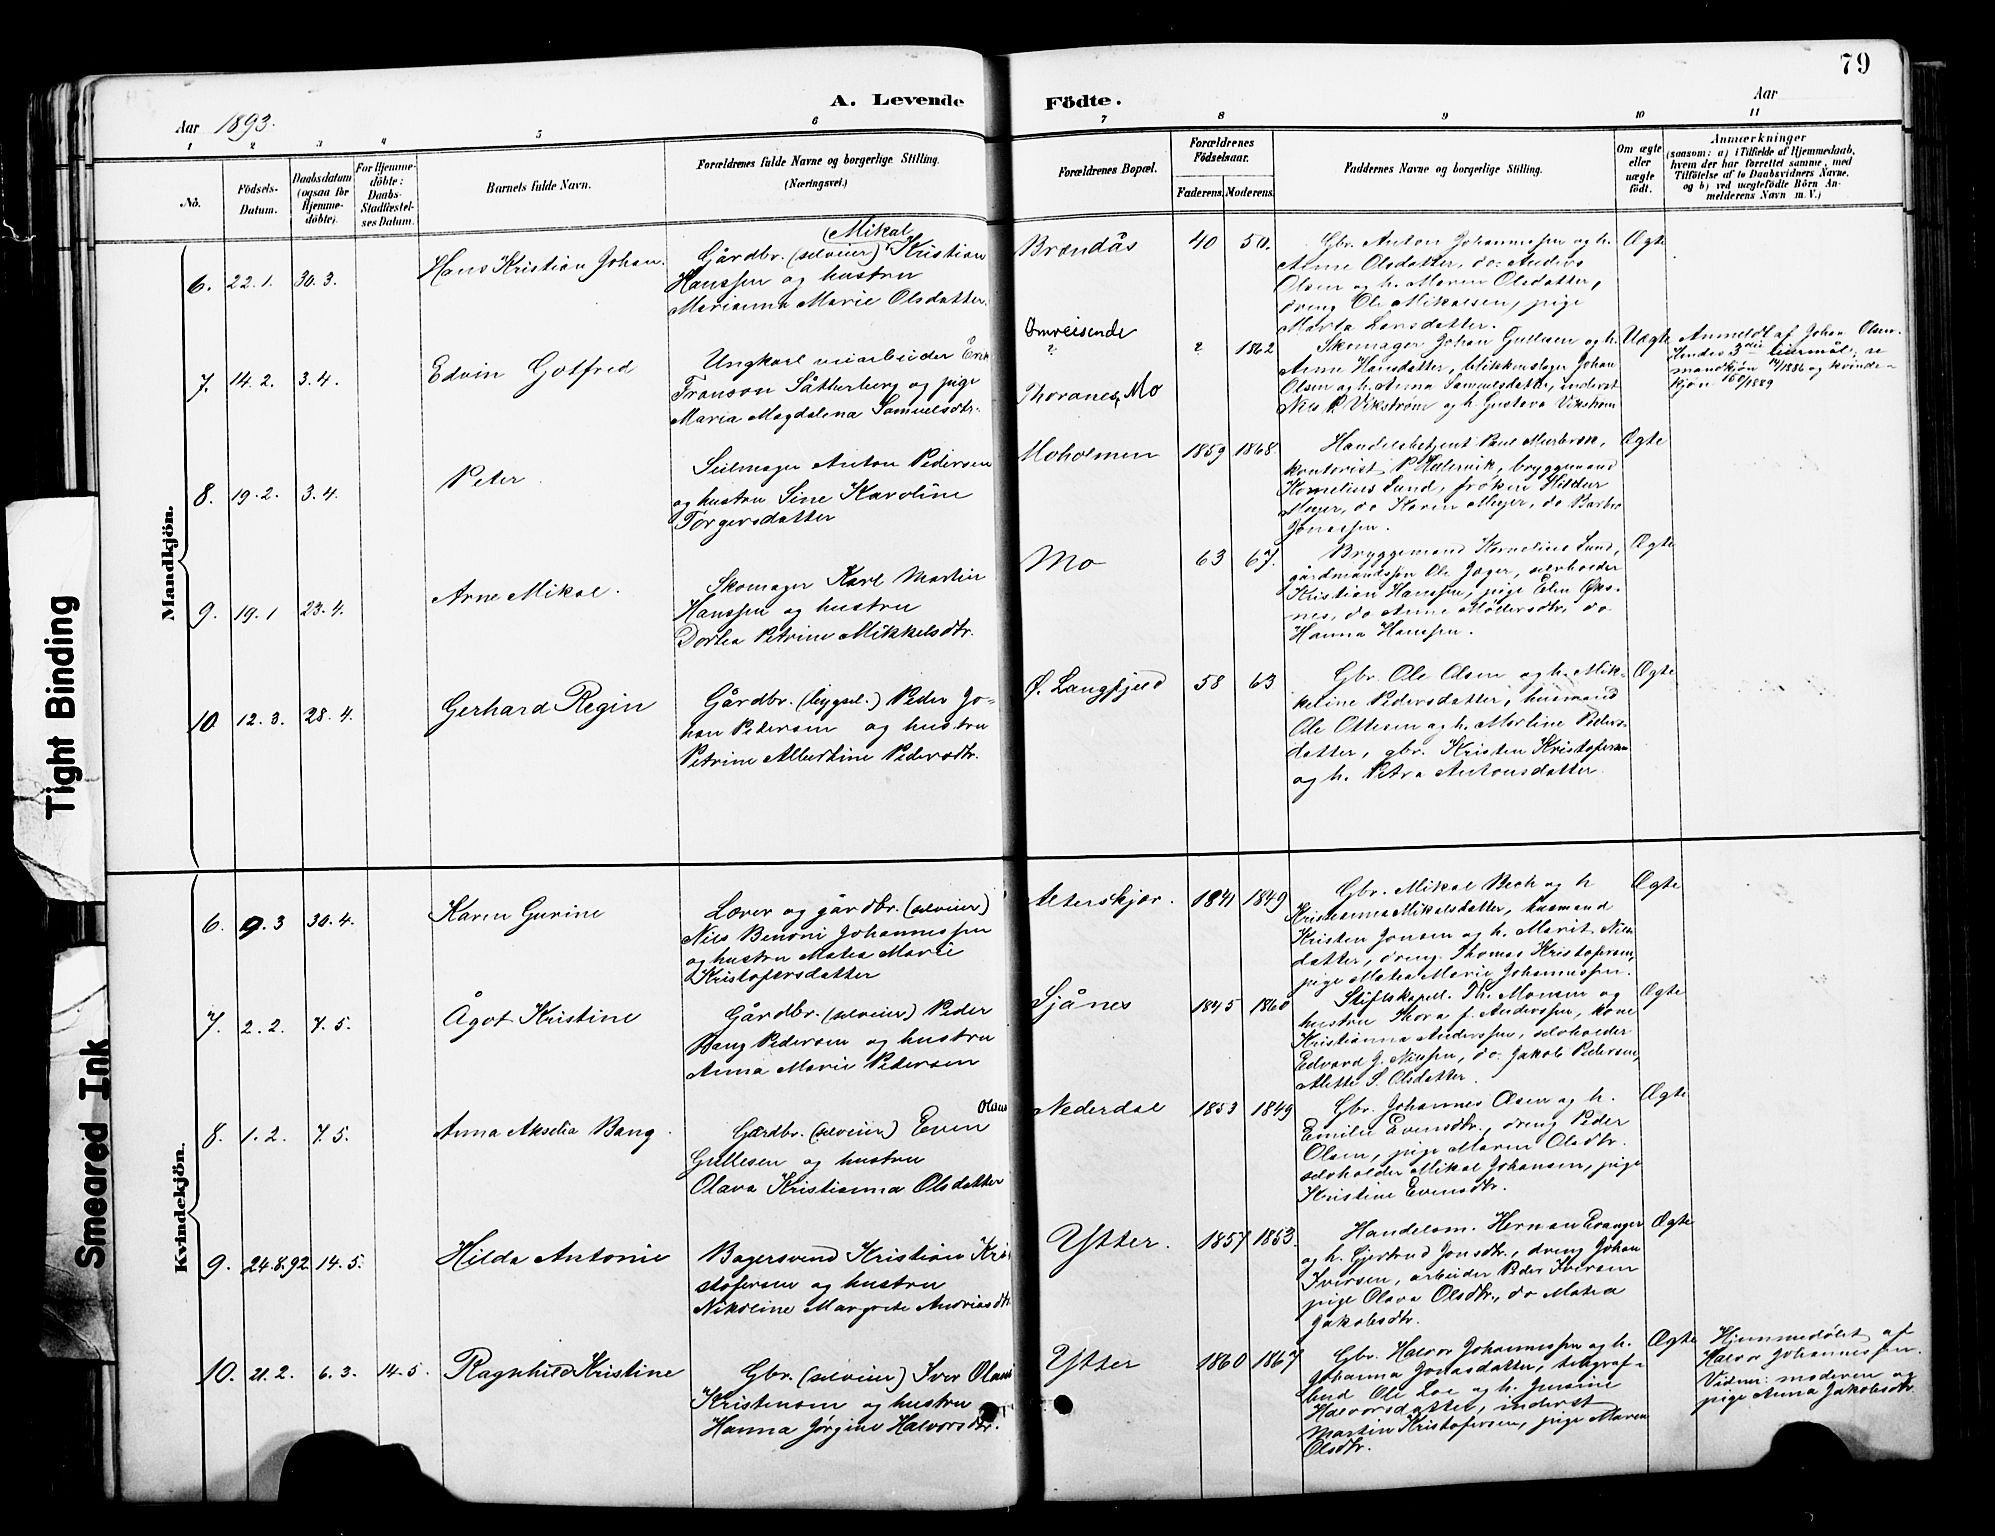 79
A. Levende Födte.
Aar 1893.
Aar
1 2 3 4 5 6 7 8 9 10 11
No.
Födsels-Datum.
Daabsdatum (ogsaa for Hjemme-döbte).
For Hjemme-döbte: Daabs-Stadfæstel-ses Datum.
Barnets fulde Navn.
Forældrenes fulde Navne og borgerlige Stilling. (Næringsvei.)
Forældrenes Bopæl.
Forældrenes Födselsaar.
Faderens. Moderens.
Faddernes Navne og borgerlige Stilling.
Om ægte eller uægte födt.
Anmærkninger
(saasom: a) i Tilfælde af Hjemmedaab,
hvem der har forrettet samme, med
Tilföielse af to Daabsvidners Navne,
og b) ved uægtefödte Börn An-
melderens Navn m. V.)
Mandkjön.
6. 22.1. 30.3. Hans Kristian Johan.
(Mikal
Gårdbr. (selveier) Kristian
Hanssen og hustru
Marianna Marie Olsdatter.
Brændås 40 50.
Gbr. Anton Johannessen og h.
Anne Olsdatter, do. Anders
Olsen og h. Maren Olsdatter,
dreng Ole Mikalsen, pige
Marta Larsdatter.
Ægte
7. 14.2. 3.4. Edvin Gotfred
Ungkarl veiarbeider Erik
Franson Såtterberg og pige
Maria Magdalena Samuelsdtr.
Omreisende
?
Thoranes, Mo
? 1862
Skomager Johan Gullesen og h.
Anne Hansdatter, blikkenslager Johan
Olsen og h. Anna Samuelsdatter, inderst
Nils P. Vikstrøm og h. Gustava Vikstrøm
Uægte
Anmeldt af Johan Olsen.
Hendes 3die leiermål; se
mandkjøn 14/1886 og kvinde-
kjøn 60/1889
8. 19.2. 3.4. Peter.
Seilmager Anton Pedersen
og hustru Sine Karoline
Torgersdatter
Moholmen 1859 1868.
Handelsbetjent Paul
kontorist P. bryggemand
Kornelius Lund, frøken Hildur
Meyer, do Karen Meyer, do
Jonassen.
Ægte
9. 19.1 23.4. Arne Mikal.
Skomager Karl Martin
Hanssen og hustru
Dortea Petrine Mikkelsdtr.
Mo 63 67.
Bryggemand Kornelius Lund,
gårdmandssøn Ole Jæger, selvholder
Kristian Hanssen, pige Elen Øks-
nes, do Anne do
Hanna Hanssen.
Ægte
10. 12.3. 28.4. Gerhard Regin
Gårdbr. (bygsel.) Peder Jo-
han Pedersen og hustru
Petrine Albertine Pedersdtr.
Ø. Langfjeld 58 63
Gbr. Ole Olsen og h. Mik-
keline Pedersdatter, husmand
Ole Ottesen og h. Martine Peders-
datter, gbr. Kristen Kristofersen
og h. Petra Antonsdatter.
Ægte
Kvindekjön.
6. 9.3 30.4. Karen Gurine
Lærer og gårdbr. (selveier)
Nils Benoni Johannessen
og hustru Matea Marie
Kristofersdatter
Alterskjær. 1841 1849
Gbr. Mikal Bech og h
Kristianna Mikalsdatter, husmand
Kristen Jonsen og h. Marit Niels-
datter, dreng Thomas Kristofersen,
pige Matea Marie Johannessen.
Ægte
7. 2.2. 7.5. Ågot Kristine
Gårdbr. (selveier) Peder
Bang Pedersen og hustru
Anna Marie Pedersen
Sjånes 1845 1860
Stiftskapell. Th. Monsen og
hustru Thora f. Anderssen, kone
Kristianna Anderssen, selvholder
Edvard J. Nilssen, do. Jakob Pedersen,
Alette S. Olsdatter.
Ægte
8. 1.2. 7.5. Anna Akselia Bang.
Olaus
Gårdbr. (selveier) Even
Gullesen og hustru
Olava Kristianna Olsdatter
Nederdal 1853 1849
Gbr. Johannes Olsen og h.
Emilie Evensdtr., dreng Peder
Olsen, pige Maren Olsdtr.
selvholder Mikal Johansen, pige
Kristine Evensdtr.
Ægte
9. 24.8.92 14.5. Hilda Antonie
Bagersvend Kristian Kri-
stofersen og hustru
Nikoline Margrete Andriasdtr.
Ytter. 1857 1853.
Handelsm. Herman Evanger
og h. Gjertrud Jonsdtr., dreng Johan
Iversen, arbeider Peder Iversen
pige Olava Olsdtr., do Matea
Jakobsdtr.
Ægte
10. 21.2. 6.3. 14.5. Ragnhild Kristine
Gbr. (selveier) Iver Olaus
Kristensen og hustru
Hanna Jørgine Halvorsdtr.
Ytter 1860 1867
Gbr. Halvor Johannessen og h.
Johanna Jonasdatter, telegraf-
bud Ole Loe og h. Gurine
Halvorsdatter, inderst
Martin Kristofersen, pige Maren
Olsdtr.
Ægte
Hjemmedøbt af
Halvor Johannessen.
Vidner: moderen og
pige Anna Jakobsdtr.
Tight Binding
Smeared Ink